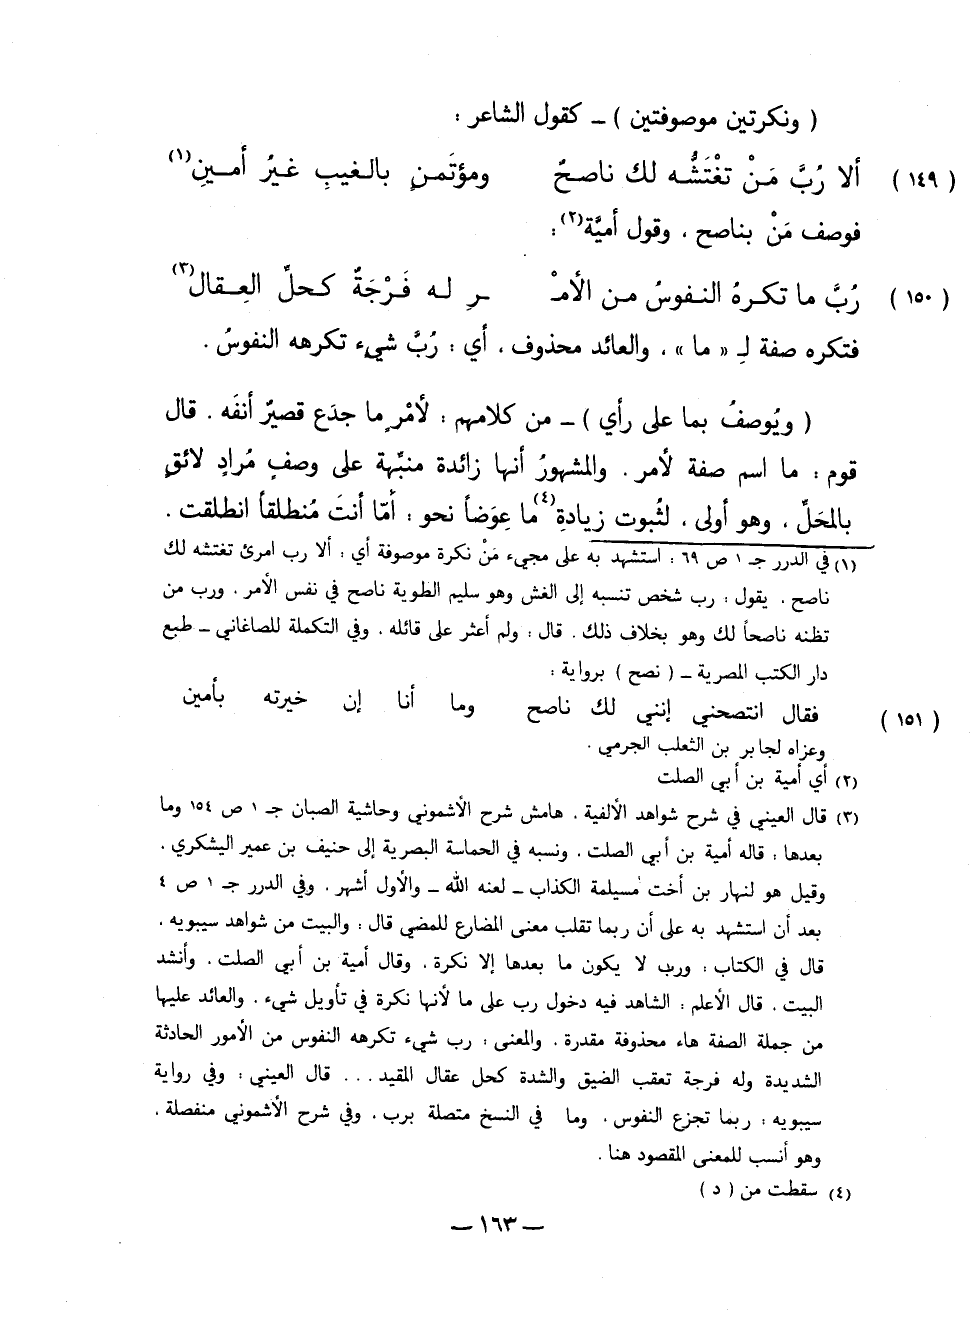 ( ونكرتين موصوفتين ) ــ كقول الشاعر :
( ١٤٩ ) ألا رُبَّ مَنْ تَغْتَشُّه لك ناصحٌ ومؤتَمنٍ بالغيبِ غيرُ أمينِ(١)
فوصف مَنْ بناصح ، وقول أميَّة(٢):
( ١٥٠ ) رُبَّ ما تكرهُ النفوسُ من الأمْـ ـرِ له فَرْجَةٌ كحلِّ العِقال(٣)
فتكره صفة لـِ « ما » ، والعائد محذوف ، أي : رُبَّ شيء تكرهه النفوسُ .
( ويُوصفُ بما على رأي ) ــ من كلامهم : لأمْرٍ ما جدَع قصيرٌ أنفَه . قال
قوم : ما اسم صفة لأمر . والمشهورُ أنها زائدة منبِّهة على وصفٍ مُرادٍ لائقٍ
بالمحَلِّ ، وهو أولى ، لثُبوت زيادةِ(٤) ما عِوَضاً نحو : أمّا أنتَ مُنطلقاً انطلقت .
(١) في الدرر جـ ١ ص ٦٩ : استشهد به على مجيء مَنْ نكرة موصوفة أي : ألا رب امرئ تغتشه لك
ناصح . يقول : رب شخص تنسبه إلى الغش وهو سليم الطوية ناصح في نفس الأمر . ورب من
تظنه ناصحاً لك وهو بخلاف ذلك . قال : ولم أعثر على قائله . وفي التكملة للصاغاني ــ طبع
دار الكتب المصرية ــ ( نصح ) برواية :
( ١٥١ ) فقال انتصحني إنني لك ناصح وما أنا إن خيرته بأمين
وعزاه لجابر بن الثعلب الجرمي .
(٢) أي أمية بن أبي الصلت
(٣) قال العيني في شرح شواهد الألفية . هامش شرح الأشموني وحاشية الصبان جـ ١ ص ١٥٤ وما
بعدها : قاله أمية بن أبي الصلت . ونسبه في الحماسة البصرية إلى حنيف بن عمير اليشكري .
وقيل هو لنهار بن أخت مسيلمة الكذاب ــ لعنه الله ــ والأول أشهر . وفي الدرر جـ ١ ص ٤
بعد أن استشهد به على أن ربما تقلب معنى المضارع للمضي قال : والبيت من شواهد سيبويه .
قال في الكتاب : ورب لا يكون ما بعدها إلا نكرة . وقال أمية بن أبي الصلت . وأنشد
البيت . قال الأعلم : الشاهد فيه دخول رب على ما لأنها نكرة في تأويل شيء . والعائد عليها
من جملة الصفة هاء محذوفة مقدرة . والمعنى : رب شيء تكرهه النفوس من الأمور الحادثة
الشديدة وله فرجة تعقب الضيق والشدة كحل عقال المقيد ... قال العيني : وفي رواية
سيبويه : ربما تجزع النفوس . وما في النسخ متصلة برب . وفي شرح الأشموني منفصلة .
وهو أنسب للمعنى المقصود هنا .
(٤) سقطت من ( د )
ــ ١٦٣ ــ